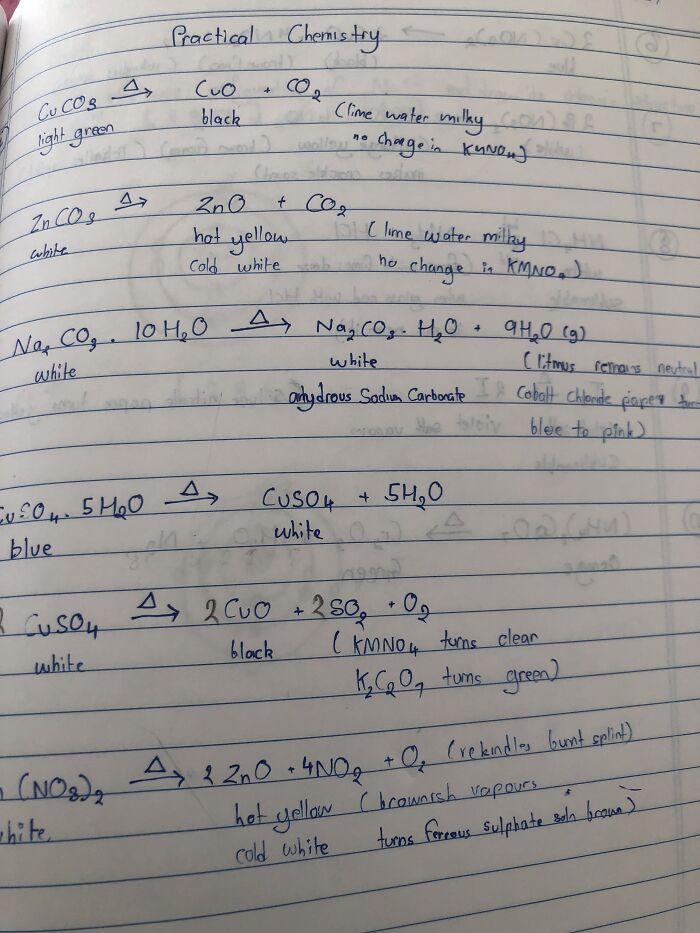 Practical Chemistry
CuCO3 Δ→ CuO + CO2
light green black (lime water milky
no change in KMNO4)
ZnCO3 Δ→ ZnO + CO2
white hot yellow (lime water milky
cold white no change in KMNO4)
Na2CO3 . 10H2O Δ→ Na2CO3 . H2O + 9H2O (g)
white white (litmus remains neutral
anhydrous Sodium Carbonate Cobalt chloride paper turn
blue to pink)
CuSO4 . 5H2O Δ→ CuSO4 + 5H2O
blue white
2 CuSO4 Δ→ 2CuO + 2SO2 + O2
white black (KMNO4 turns clear
K2C2O7 turns green)
(NO3)2 Δ→ 2 ZnO + 4NO2 + O2 (rekindles burnt splint)
white hot yellow (brownish vapours
cold white turns ferrous sulphate soln brown)